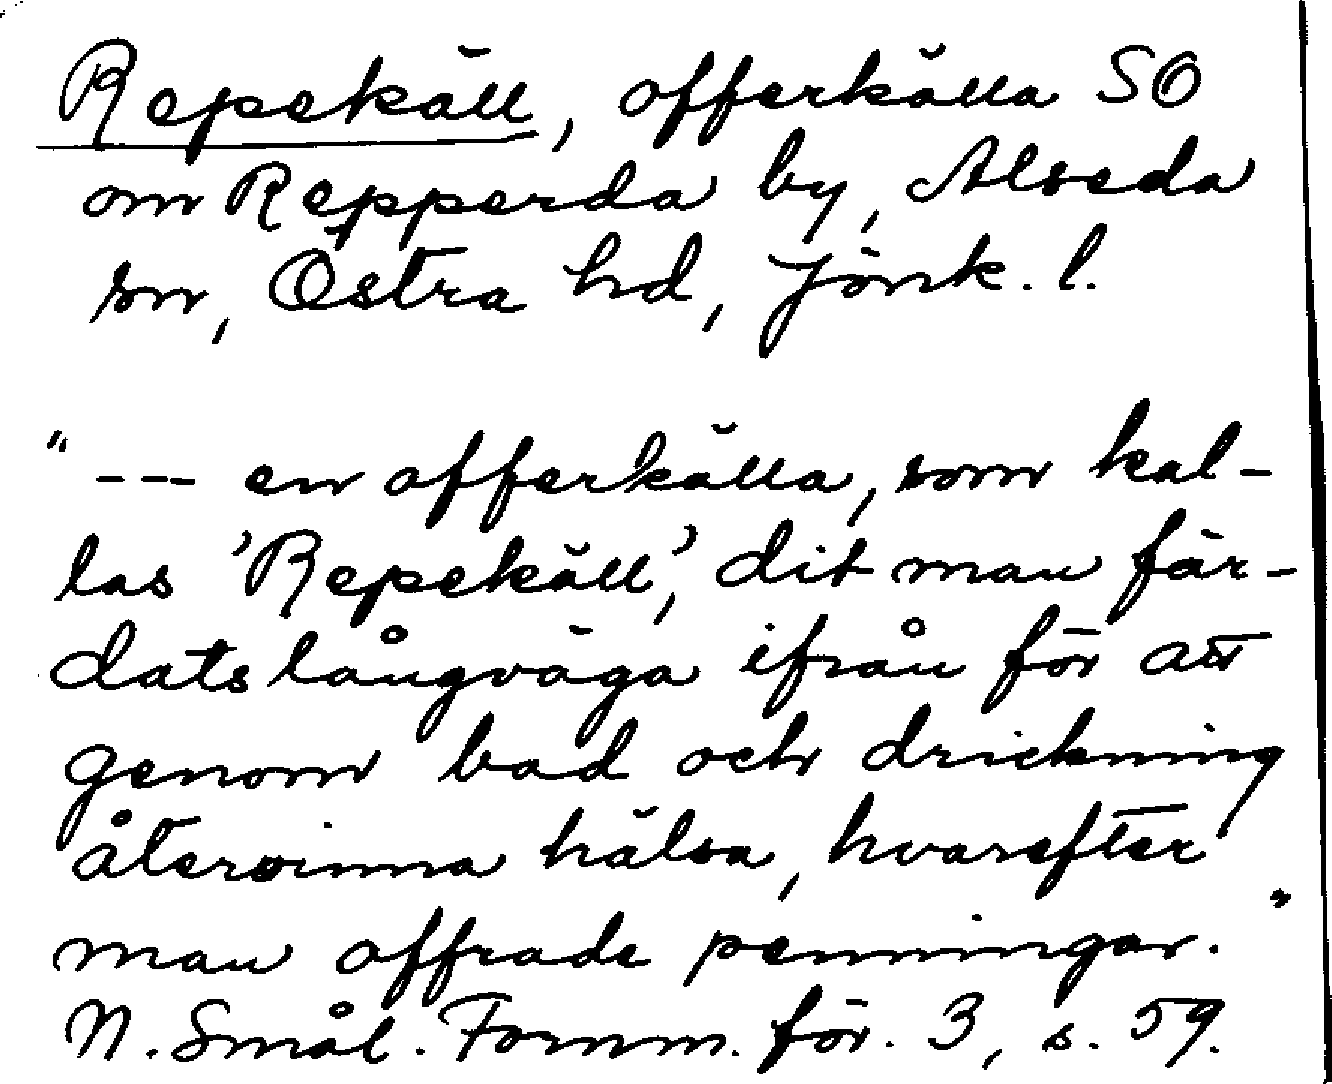 Repekäll, offerkälla SO
om Repperda by, Alseda
sn, Östra hd, Jönk. l.
"--- en offerkälla, som kal-
las 'Repekäll', dit man fär-
dats långväga ifrån för att
genom bad och drickning
återvinna hälsa, hvarefter
man offrade penningar."
N. Smål. Fornm. för. 3, s. 59.